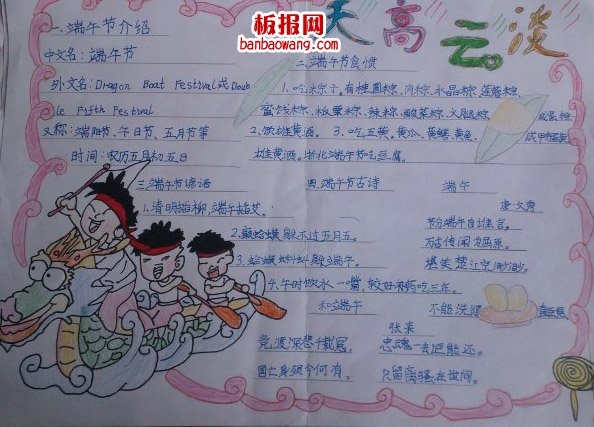 板报网
banbaowang.com
天高云淡
一、端午节介绍
中文名:端午节
外文名:Dragon Boat Festival或Doub
le Fifth Festival
又称:端阳节、午日节、五月节等
时间:农历五月初五日
二、端午节食惯
1、吃粽子,有桂圆粽、肉粽、水晶粽、莲蓉粽、
蜜饯粽、板栗粽、辣粽、酸菜粽、火腿粽、
咸蛋粽
2、饮雄黄酒。 3、吃五黄,黄瓜、黄鳝、黄鱼、
咸鸭蛋黄
雄黄酒。浙北端午节吃豆腐
三、端午节谚语
1、清明插柳,端午插艾。
2、癞蛤蟆躲不过五月五。
3、蛤蟆蝌蚪躲端午。
4、午时饮水一嘴,较好补药吃三年。
四、端午节古诗
端午
唐·文秀
节分端午自谁言,
万古传闻为屈原。
堪笑楚江空渺渺,
不能洗得直臣冤。
和端午
张耒
竞渡深悲千载冤,忠魂一去讵能还。
国亡身殒今何有,只留离骚在世间。